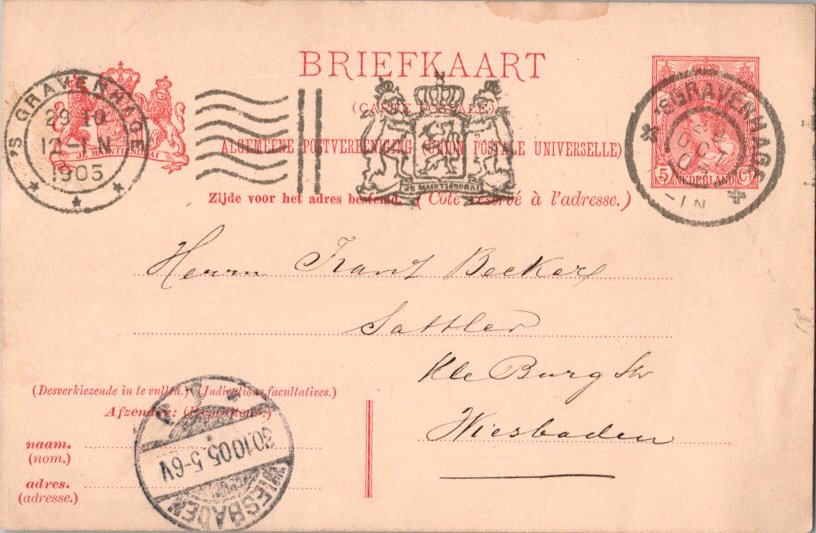 BRIEFKAART
(CARTE POSTALE)
ALGEMEENE POSTVEREENIGING (UNION POSTALE UNIVERSELLE)
Zijde voor het adres bestemd. (Côté réservé à l'adresse.)
'S GRAVENHAGE
29 10
12-1 N
1905
JE MAINTIENDRAI
JE MAINTIENDRAI
'SGRAVENHAGE
OCT
05
5 NEDERLAND Ct
Herrn Franz Becker
Sattler
Kle Burg Str
Wiesbaden
(Desverkiezende in te vullen.) (Indications facultatives.)
Afzender: (Expéditeur.)
naam.
(nom.)
adres.
(adresse.)
30.10.05.5-6V
WIESBADEN